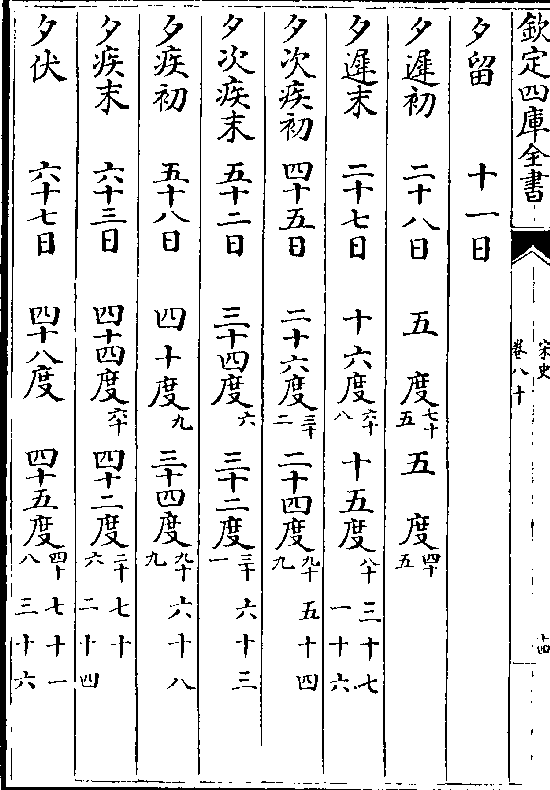 欽定四庫全書
宋史
卷八十
十四
夕留 十一日
夕遲初 二十八日 五度七十五 五度四十五
夕遲末 二十七日 十六度六十八 十五度八十 三十七 一十六
夕次疾初 四十五日 二十六度三十二 二十四度九十九 五十四
夕次疾末 五十二日 三十四度六 三十二度三十一 六十三
夕疾初 五十八日 四十度九 三十四度九十九 六十八
夕疾末 六十三日 四十四度六十 四十二度二十六 七十 二十四
夕伏 六十七日 四十八度 四十五度四十八 七十一 三十六